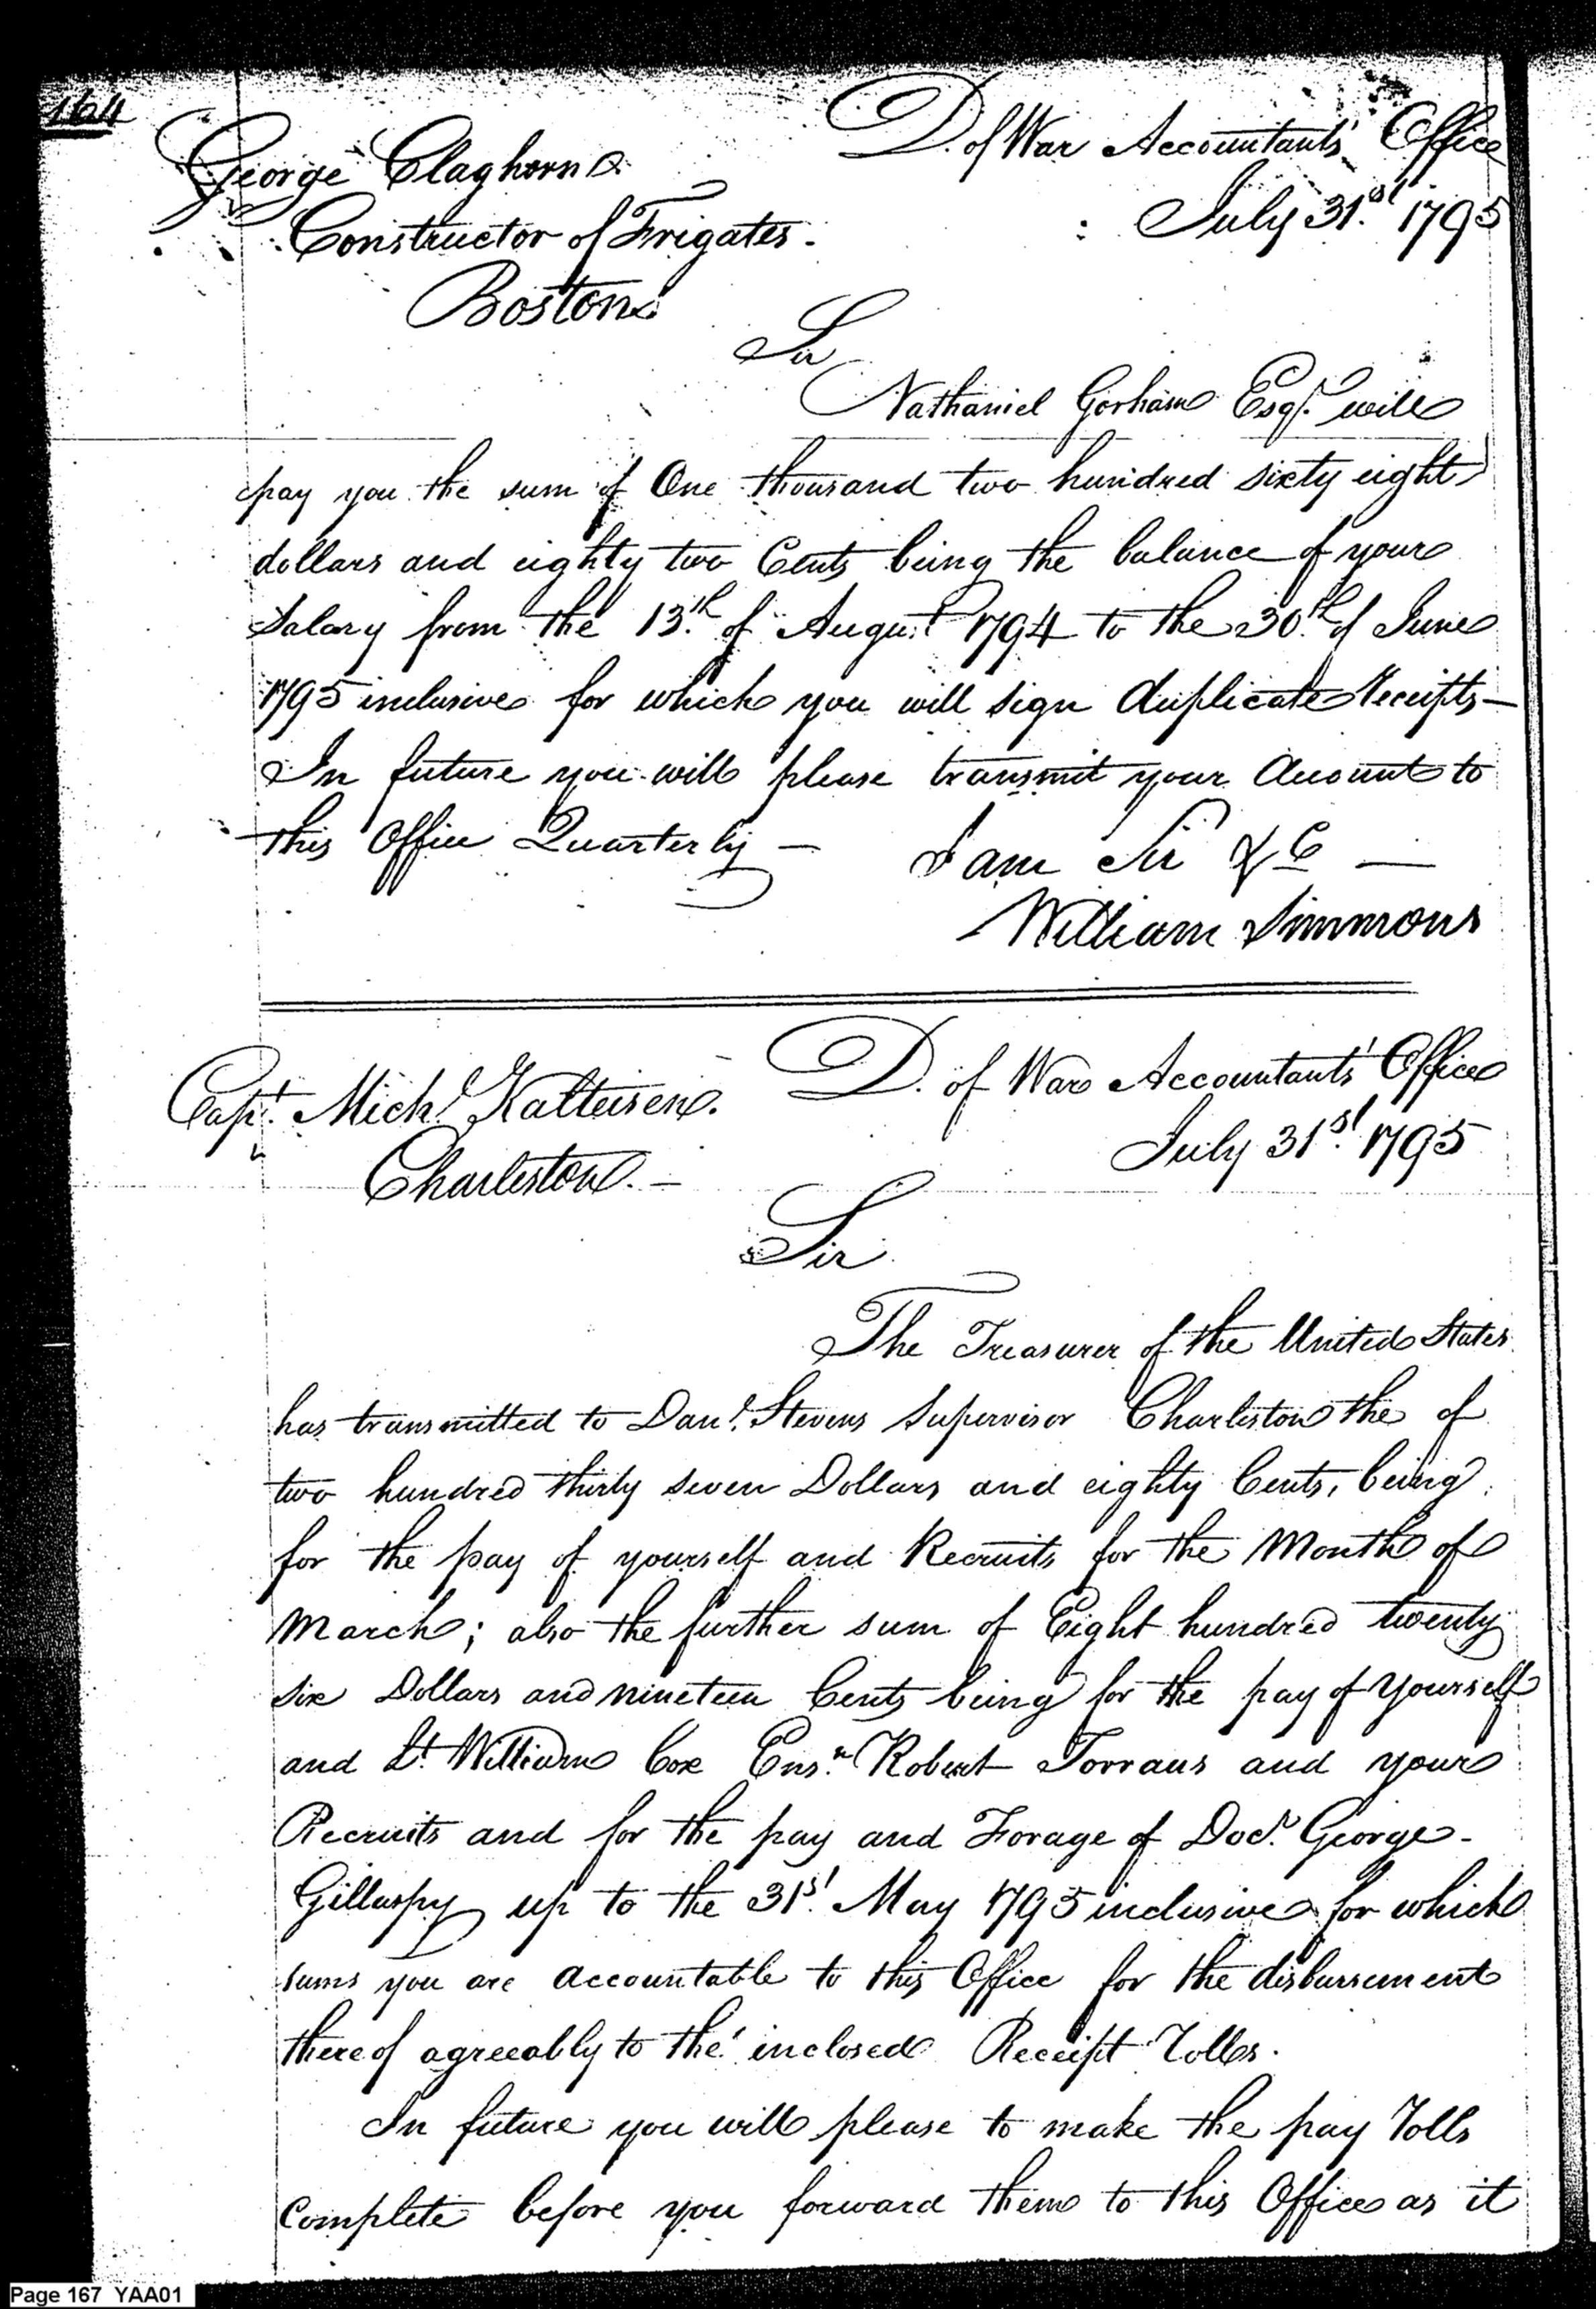 164
George Claghorn
Constructor of Frigates.
Boston
D. of War Accountants' Office
July 31.st 1795
Sir
Nathaniel Gorham Esqr. will
pay you the sum of One thousand two hundred sixty eight
dollars and eighty two Cents being the balance of your
Salary from the 13.th of August 1794 to the 30.th of June
1795 inclusive for which you will sign duplicate Receipts —
In future you will please transmit your Account to
this Office Quarterly —
I am Sir &c —
William Simmons
Capt. Michl. Kalteisen.
Charleston. —
D. of War Accountants' Office
July 31st. 1795
Sir
The Treasurer of the United States
has transmitted to Danl. Stevens Supervisor Charleston the of
two hundred thirty seven Dollars and eighty Cents, being
for the pay of yourself and Recruits for the Month of
March; also the further sum of Eight hundred twenty
six Dollars and nineteen Cents being for the pay of yourself
and Lt. William Cox Ensn. Robert Torrans and your
Recruits and for the pay and Forage of Docr. George
Gillaspy up to the 31st. May 1795 inclusive for which
sums you are accountable to this Office for the disbursement
thereof agreeably to the inclosed Receipt Rolls.
In future you will please to make the pay Rolls
Complete before you forward them to this Office as it
Page 167 YAA01